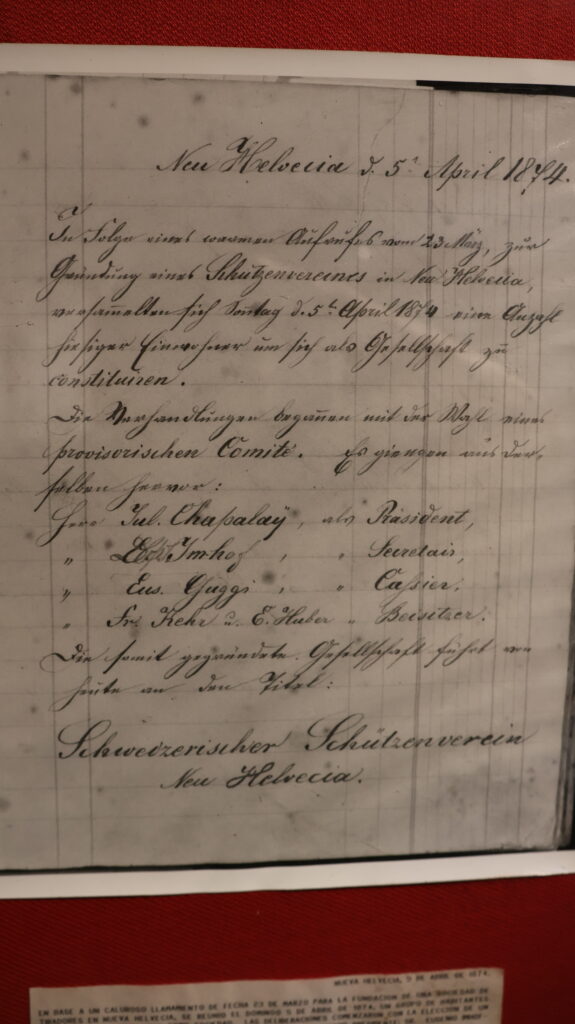 Neu Helvecia d. 5t April 1874.
In Folge eines warmen Aufrufes vom 23 März, zur
Gründung eines Schützenvereines in Neu Helvecia,
versammelten sich Sontag d. 5t April 1874 eine Anzahl
hiesiger Einwohner um sich als Gesellschaft zu
constituiren.
Die Verhandlungen begannen mit der Wahl eines
provisorischen Comité. Es giengen aus der-
selben hervor:
Herr Jul. Chapalaÿ, als Präsident,
" Imhof, " Secretair,
" Eus. Guggi, " Cassier.
" Fr. Kehr u. E. Huber " Beisitzer.
Die somit gegründete Gesellschaft führt von
heute an den Titel:
Schweizerischer Schützenverein
Neu Helvecia.
NUEVA HELVECIA, 5 DE ABRIL DE 1874.
EN BASE A UN CALUROSO LLAMAMIENTO DE FECHA 23 DE MARZO PARA LA FUNDACION DE UNA SOCIEDAD DE
TIRADORES EN NUEVA HELVECIA, SE REUNIO EL DOMINGO 5 DE ABRIL DE 1874, UN GRUPO DE HABITANTES
LAS DELIBERACIONES COMENZARON CON LA ELECCION DE UN